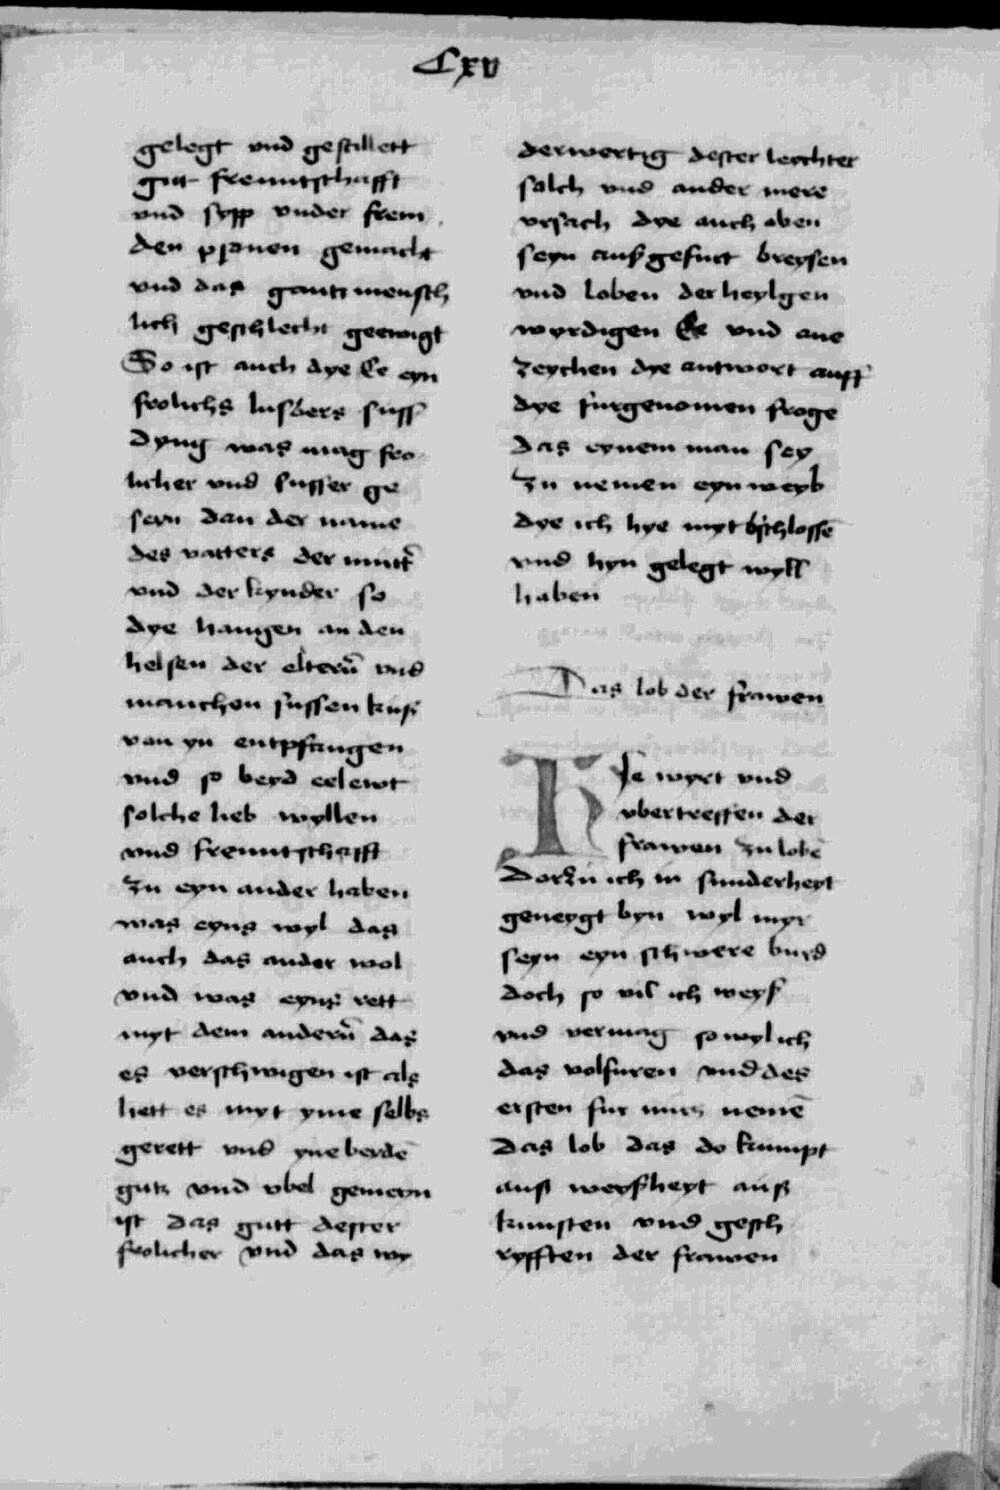 Cxv
gelegt vnd gestillett
gut freuntschafft
vnd sypp vnder frem
den ꝑsonen gemacht
vnd das gantz mensch
lich geschlecht geewigt
So ist auch dye Ee eyn
frolichs lustbers suss
dyng was mag fro
licher vnd susser ge
seyn dan der name
des vatters der mutt̄
vnd der kynder so
dye hangen an den
helsen der elterñ vnd
manchen sussen kuß
von yn entpfangen
vnd so beyd eelewt
solche lieb wyllen
vnd freuntschafft
zu eyn ander haben
was eyns wyl das
auch das ander wol
vnd was eyns rett
myt dem anderñ das
es verschwigen ist als
hett es myt yme selbs
gerett vnd yne beydē
guts vnd vbel gemeyn
ist das gutt dester
frolicher vnd das wy
derwertig dester leychter
solch vnd ander mere
vrsach dye auch oben
seyn außgefurt breysen
vnd loben der heylgen
wyrdigen Ee vnd ane
zeychen dye antwort auff
dye furgenomen froge
das eynem man sey
zu nemen eyn weyb
dye ich hye myt bschlossē
vnd hyn gelegt wyll
haben
Das lob der frawen
Hye wyrt vnd
vbertreffen der
frawen zu lobē
Dorzu ich in sunderheyt
geneygt byn wyl myr
seyn eyn schwere burd
doch so vil ich weyß
vnd vermag so wyl ich
das volfuren vnd des
ersten fur mich nemē
Das lob das do kumpt
auß weyßheyt auß
kunsten vnd gesch
ryfften der frawen